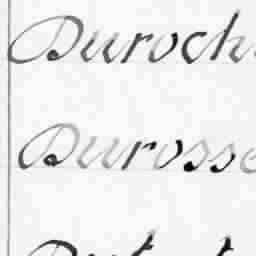 Duroch
Durosse